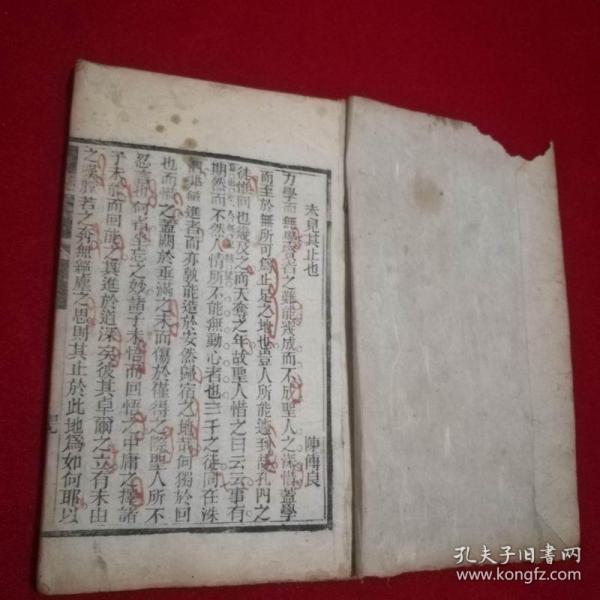 未見其止也
陳傅良
力學而無學者之難能幾成而不成聖人之深惜蓋學
而至於無所可爲止足之地也豈人所能遽到哉孔門之
徒惟回也幾及之而天奪之年故聖人惜之曰云云事有
期然而不然人情所不能無動心者也三千之徒同在洙
進者而亦孰能造於安然歸宿之地若何獨於回
也而惜之蓋關於垂滿之未而傷於僅得之際聖人所不
忍言也何者坐忘之妙諸子未悟而回悟之中庸之擇諸
子未能而回能之眞進於道深矣彼其卓爾之立有未由
之嘆脫若之奔無絕塵之思則其止於此地爲如何耶以
孔夫子旧書网
www.kongfz.com